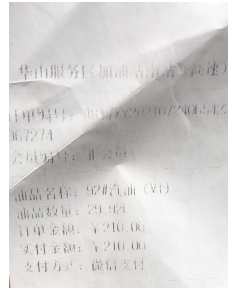 华山服务区加油站南站（高速）
订单编号：
167274
会员编号：非会员
油品名称：92#汽油（VI）
油品数量：29.921
订单金额：￥210.00
实付金额：￥210.00
支付方式：微信支付